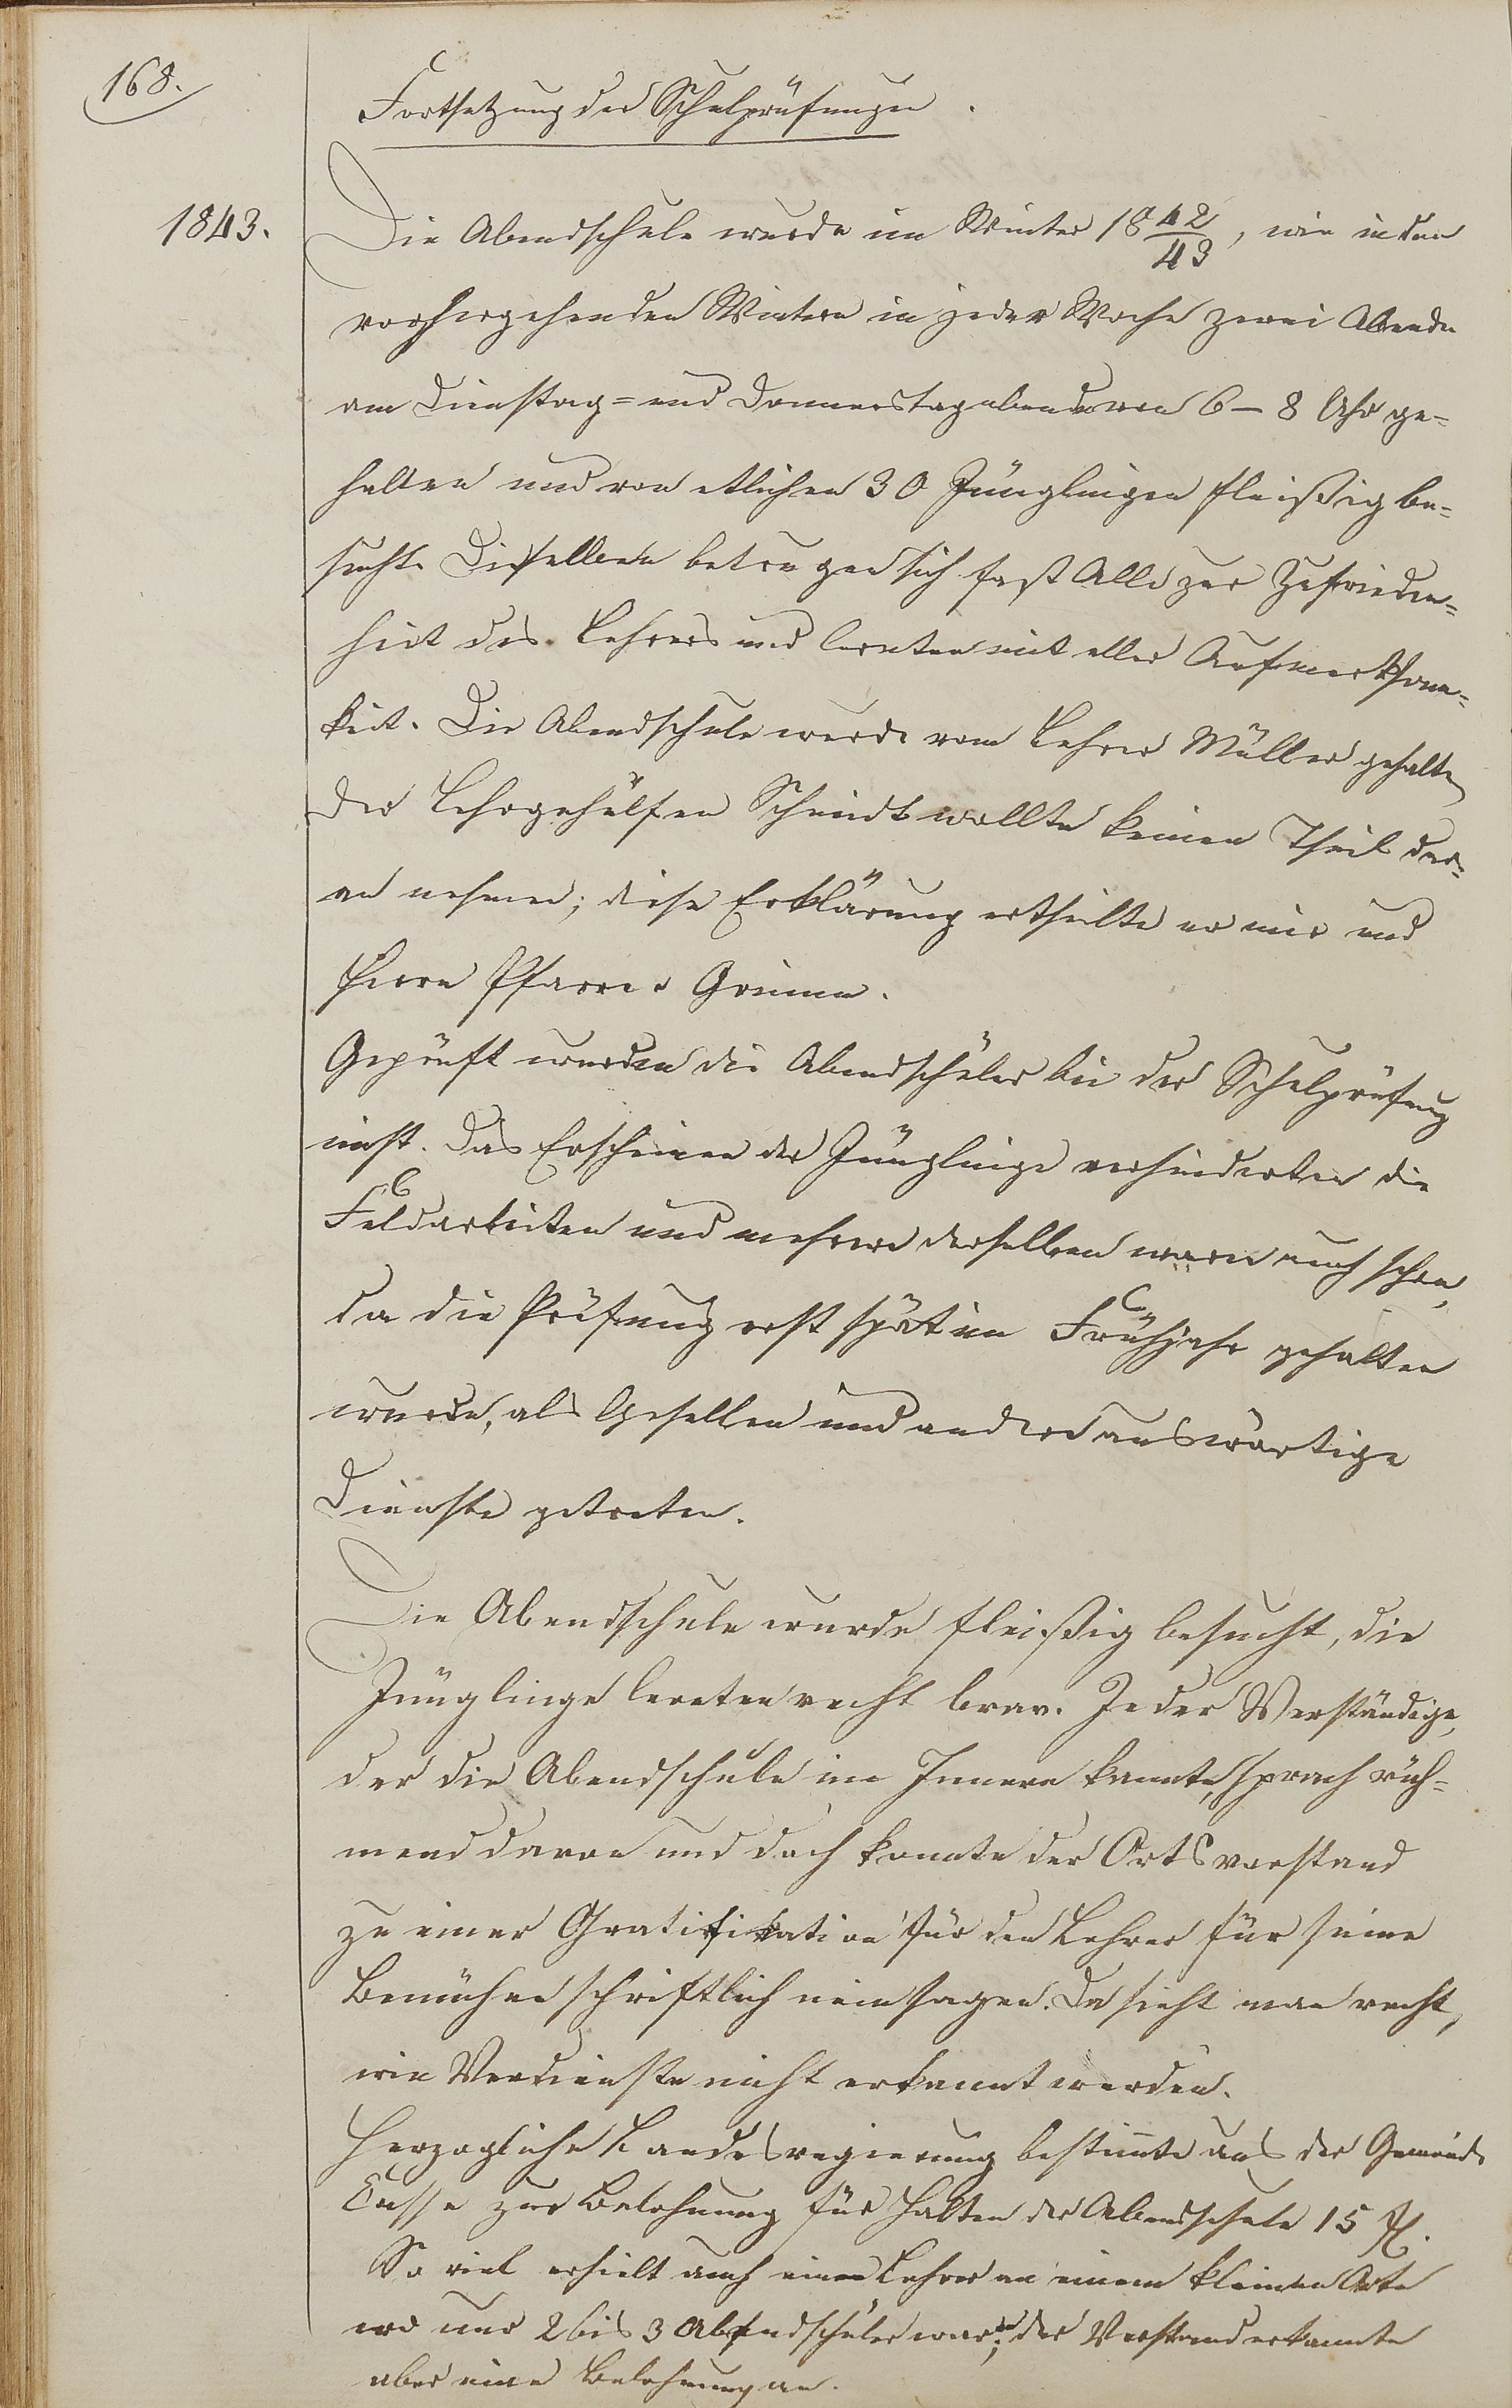 168.
Fortsetzung der Schulprüfungen.
1843.
Die Abendschule wurde im Winter 18 42/43, wie in den
vorhergehenden Wintern in jeder Woche zwei Abende
am Dienstag= und Donnerstagabende von 6 – 8 Uhr ge=
halten und von etlichen 30 Jünglingen fleißig be=
sucht. Dieselben betrugen sich fast Alle zur Zufrieden=
heit des Lehrers und lernten mit aller Aufmerksam=
keit. Die Abendschule wurde vom Lehrer Müller gehalten
der Lehrgehülfen Schmidt wollte keinen Theil dar=
an nehmen; diese Erklärung ertheilte er mir und
Herrn Pfarrer Grimm.
Geprüft wurden die Abendschüler bei der Schulprüfung
nicht. Das Erscheinen der Jünglinge verhinderten die
Feldarbeiten und mehrere derselben waren auch schon,
da die Prüfung erst spät im Frühjahr gehalten
wurde, als Gesellen und andere auswärtige
Dienste getreten.
Die Abendschule wurde fleißig besucht, die
Jünglinge lernten recht brav. Jeder Verständige,
der die Abendschule im Innern kannte, sprach rüh=
mend davon und doch konnte der Ortsvorstand
zu einer Gratifikation für den Lehrer für seine
Bemühen schriftlich nein sagen. Da sieht man recht,
wie Verdienste nicht erkannt werden.
Herzogliche Landesregierung bestimte aus der Gemeinde
Casse zur Belohnung für Halten der Abendschule 15 fl.
So viel erhielt auch einen Lehrer an einem kleinen Orte
wo nur 2 bis 3 Abendschüler waren; der Vorstand erkannte
aber eine Belohnung an.